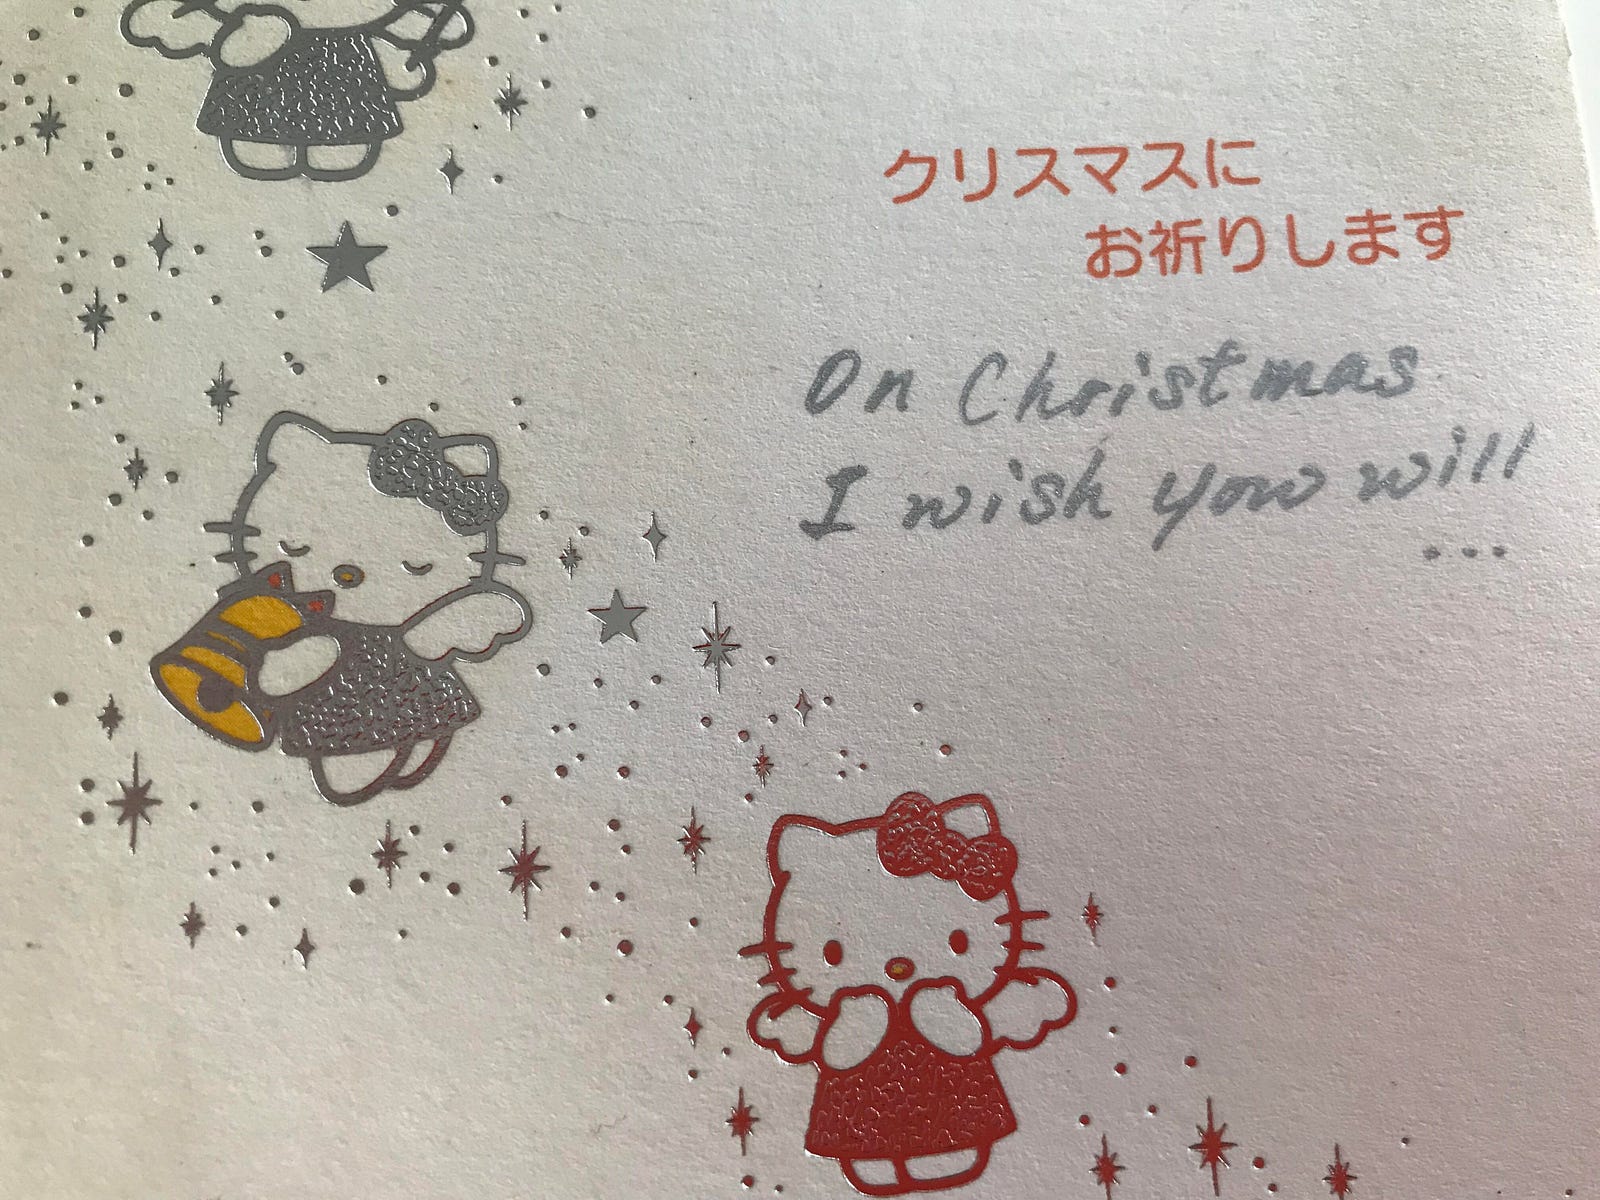 クリスマスに
お祈りします
On Christmas
I wish you will
...